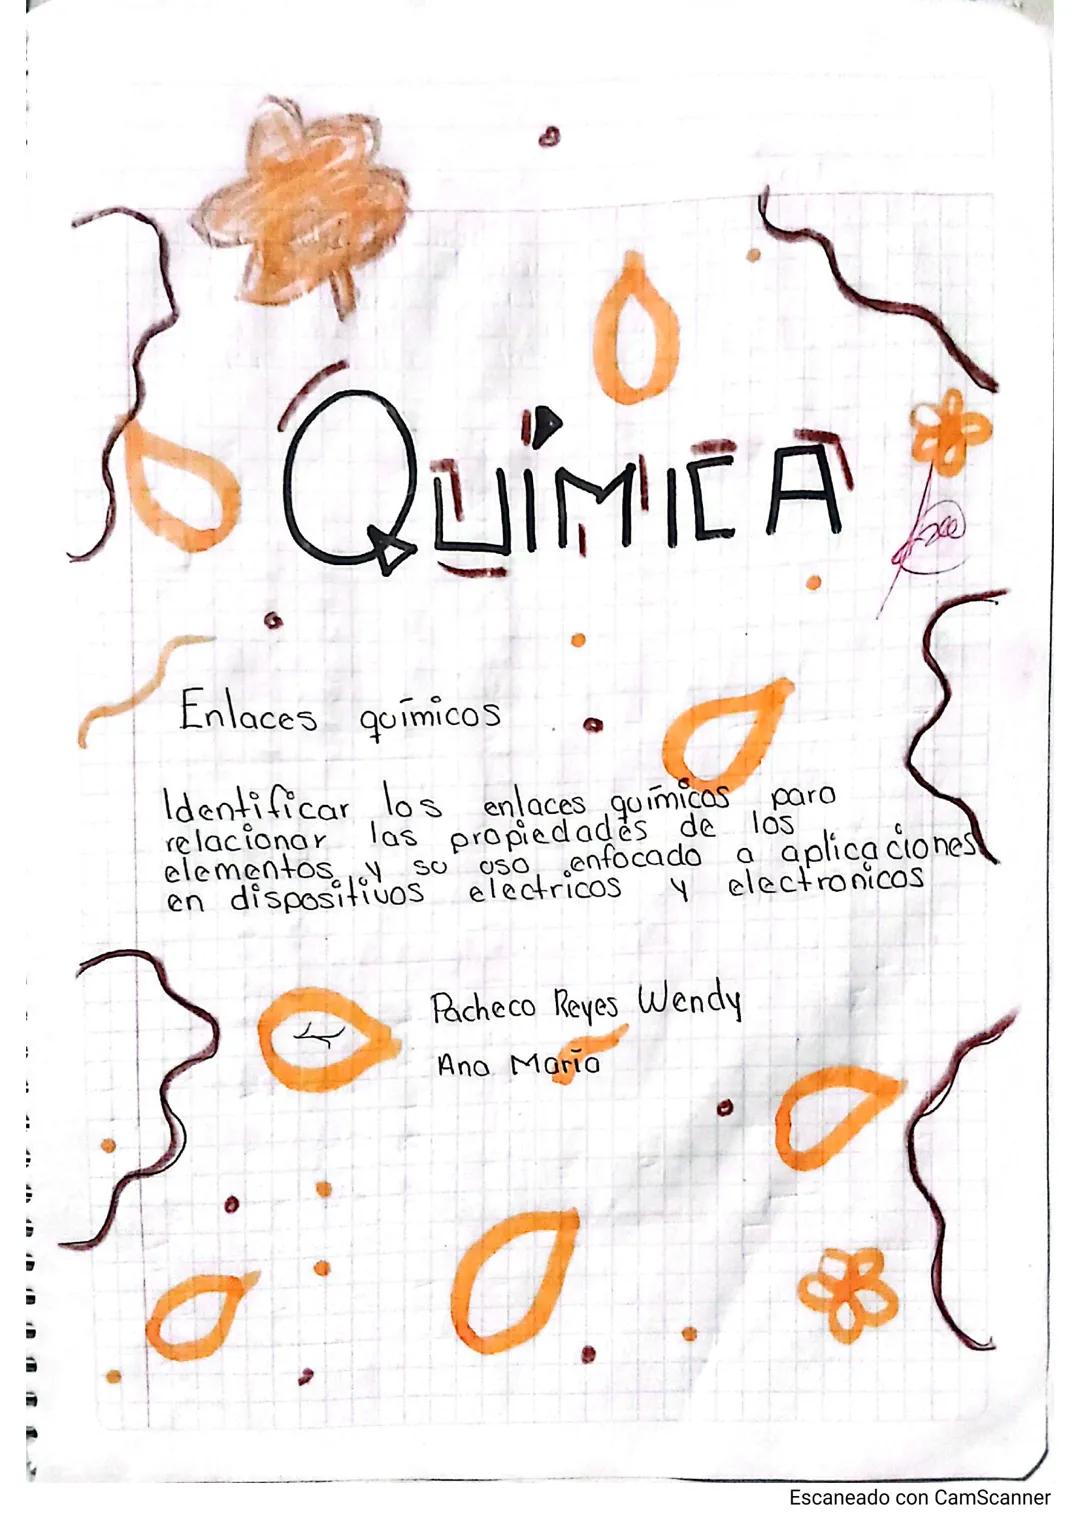 QUÍMICA
Enlaces químicos
Identificar los enlaces químicos para
relacionar las propiedades de los
elementos y su uso enfocado a aplicaciones
en dispositivos electricos y electronicos
Pacheco Reyes Wendy
Ana María
Escaneado con CamScanner